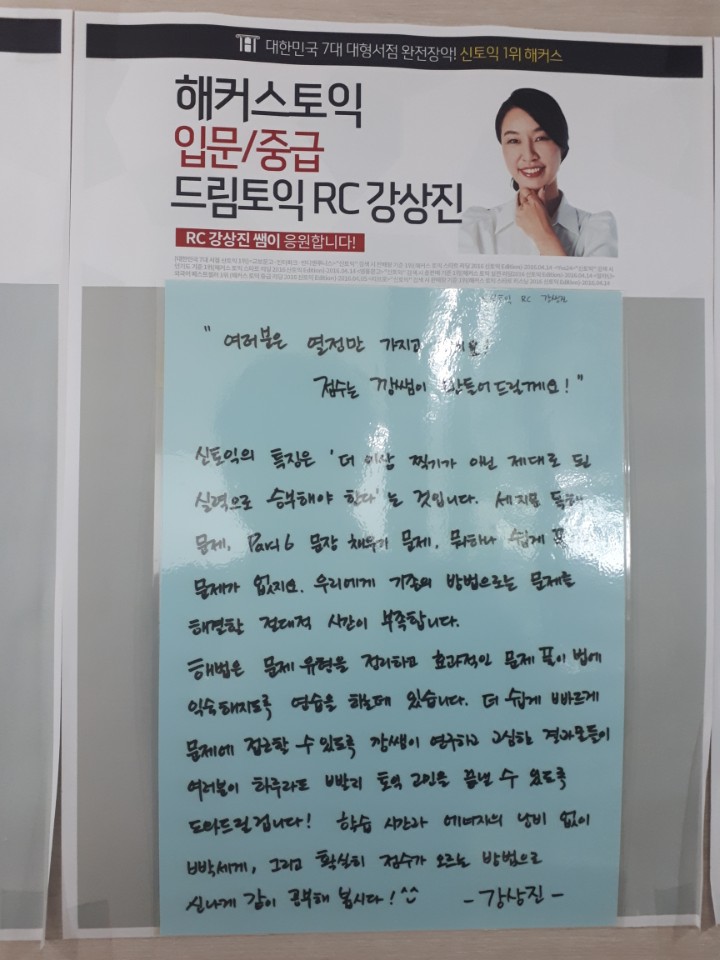 대한민국 7대 대형서점 완전장악! 신토익 1위 해커스
해커스토익
입문/중급
드림토익 RC 강상진
RC 강상진 쌤이 응원합니다!
토익 RC 강상진
" 여러분은 열정만 가지고
점수는 깡쌤이 만들어드릴께요! "
신토익의 특징은 '더 이상 찍기가 아닌 제대로 된
실력으로 승부해야 한다'는 것입니다. 세 지문 독해
문제, Part 6 문장 채우기 문제, 뭐하나 쉽게
문제가 없지요. 우리에게 기존의 방법으로는 문제를
해결할 절대적 시간이 부족합니다.
해법은 문제 유형을 정리하고 효과적인 문제 풀이 법에
익숙해지도록 연습을 하는데 있습니다. 더 쉽게 빠르게
문제에 접근할 수 있도록 깡쌤이 연구하고 고심한 결과물들이
여러분이 하루라도 빨리 토익 고민을 끝낼 수 있도록
도와드릴겁니다! 학습 시간과 에너지의 낭비 없이
빡세게, 그리고 확실히 점수가 오르는 방법으로
신나게 같이 공부해 봅시다! ^^ - 강상진 -